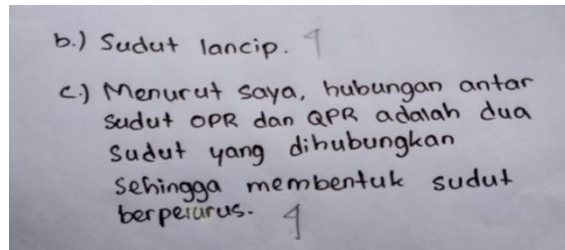 b.) Sudut lancip. 1
c.) Menurut saya, hubungan antar
sudut OPR dan QPR adalah dua
sudut yang dihubungkan
sehingga membentuk sudut
berpelurus. 1